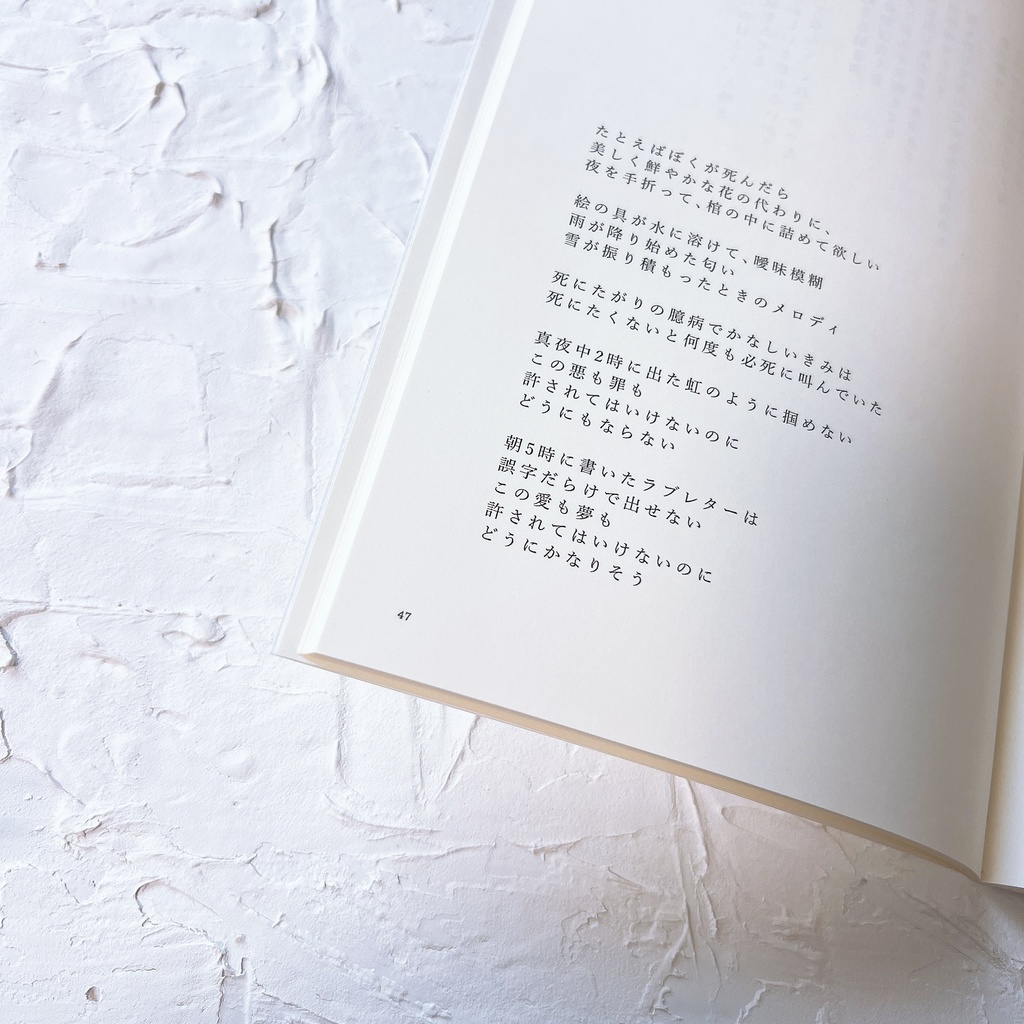 たとえばぼくが死んだら
美しく鮮やかな花の代わりに、
夜を手折って、棺の中に詰めて欲しい
絵の具が水に溶けて、曖昧模糊
雨が降り始めた匂い
雪が振り積もったときのメロディ
死にたがりの臆病でかなしいきみは
死にたくないと何度も必死に叫んでいた
真夜中2時に出た虹のように掴めない
この悪も罪も
許されてはいけないのに
どうにもならない
朝5時に書いたラブレターは
誤字だらけで出せない
この愛も夢も
許されてはいけないのに
どうにかなりそう
47